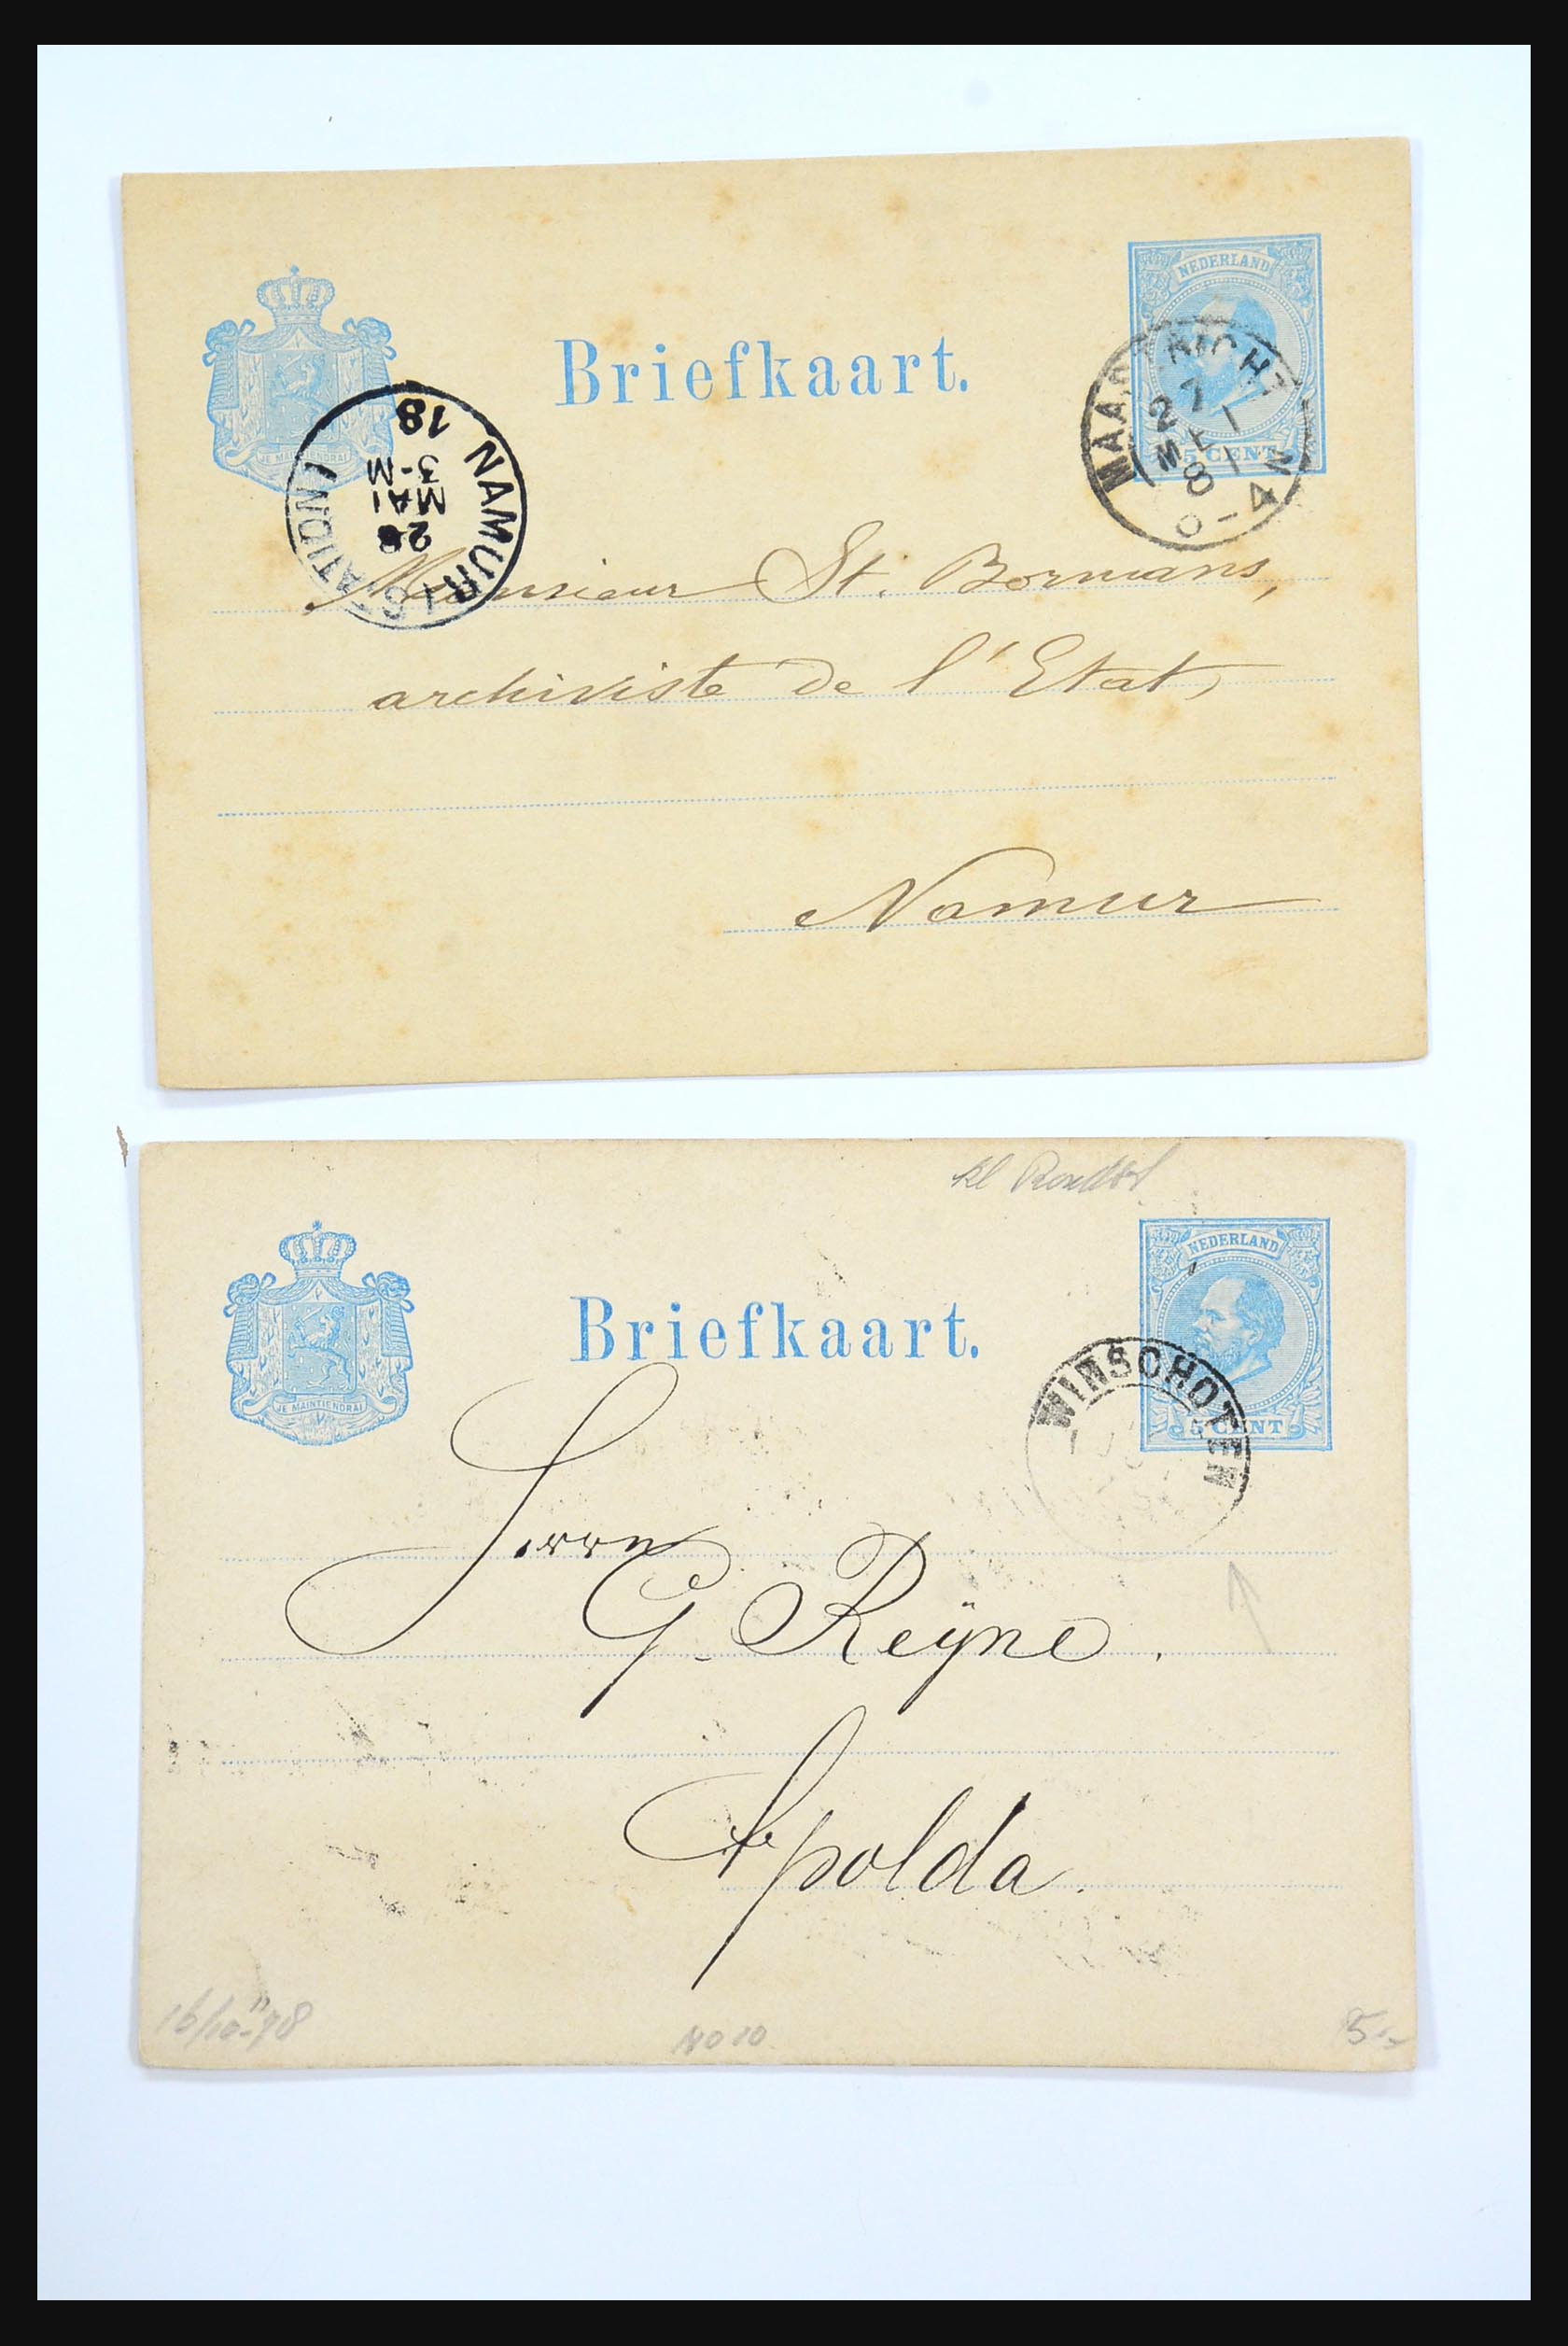 Briefkaart.
NEDERLAND
5 CENT
JE MAINTIENDRAI
MAASTRICHT
27
MEI
81
NAMUR (STATION)
28
MAI
3-M
18
Monsieur St. Bormans,
archiviste de l'Etat,
Namur
kl Rondst
Briefkaart.
NEDERLAND
5 CENT
JE MAINTIENDRAI
WINSCHOTEN
Herrn
G. Reÿne.
Apolda.
16/10-78
5,-